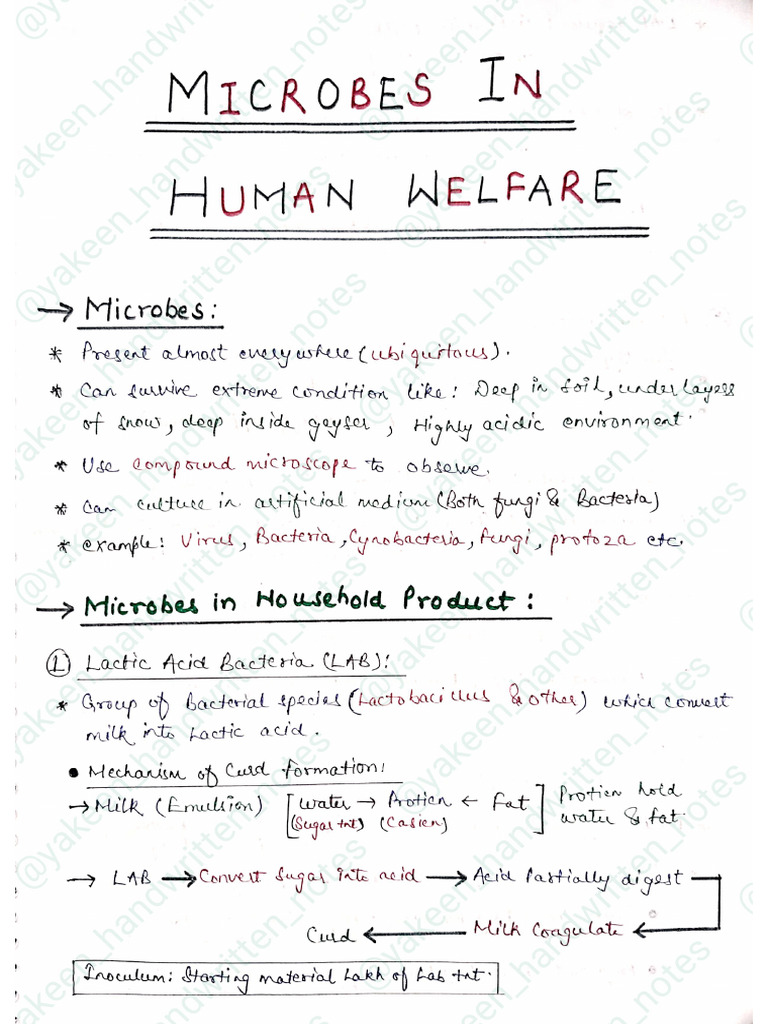 MICROBES IN
HUMAN WELFARE
→ Microbes:
* Present almost everywhere (ubiquitous).
* Can survive extreme condition like: Deep in soil, under layers
of snow, deep inside geyser, Highly acidic environment.
* Use compound microscope to observe.
* Can culture in artificial medium (Both fungi & Bacteria)
* example: Virus, Bacteria, Cynobacteria, fungi, protoza etc.
→ Microbes in Household Product:
① Lactic Acid Bacteria (LAB):
* Group of Bacterial species (Lactobacillus & other) which convert
milk into Lactic acid.
• Mechanism of Curd formation:
→ Milk (Emulsion) [water → Protien ← Fat] Protien hold
(Sugar tnt) (Casien) water & fat.
→ LAB → Convert Sugar into acid → Acid Partially digest
Curd ← Milk Coagulate
Inoculum: Starting material Lakh of Lab tnt.
@yakeen_handwritten_notes